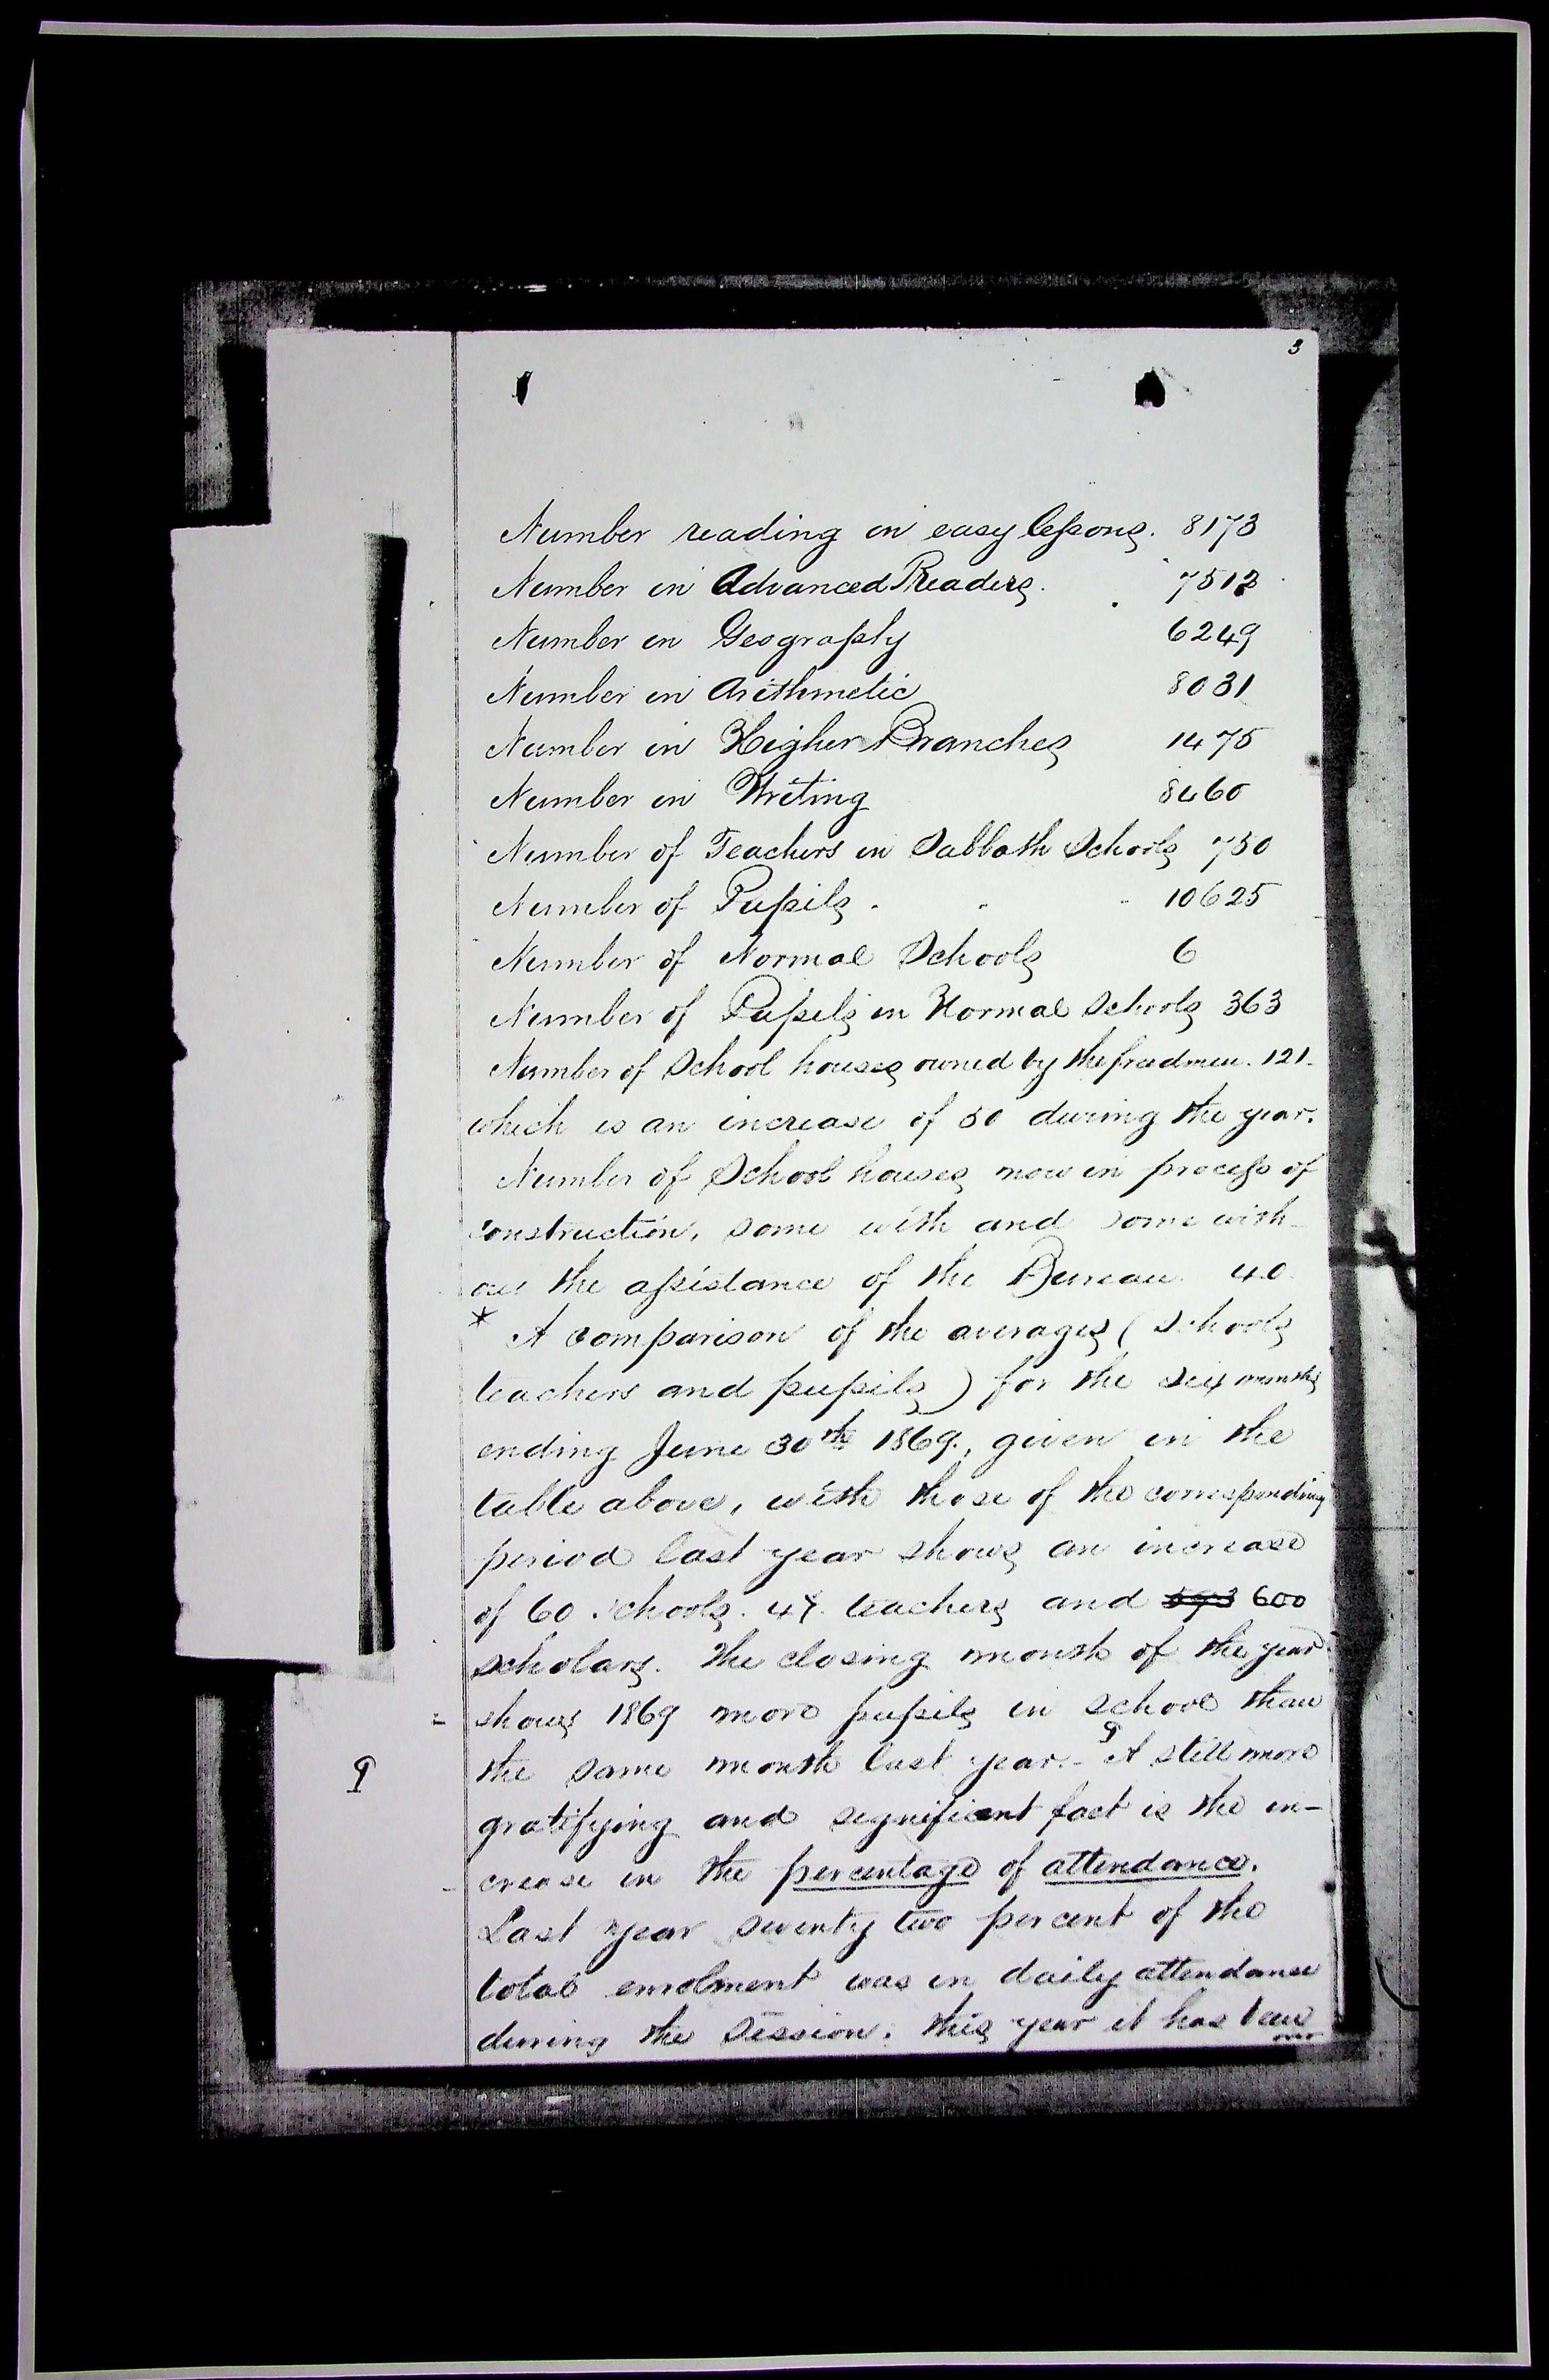 3
Number reading in easy lessons. 8173
Number in Advanced Readers. 7513
Number in Geography 6249
Number in Arithmetic 8031
Number in Higher Branches 1475
Number in Writing 8460
Number of Teachers in Sabbath Schools 750
Number of Pupils " " 10625
Number of Normal Schools 6
Number of Pupils in Normal Schools 363
Number of School houses owned by the freedmen. 121.
which is an increase of 50 during the year.
Number of School houses now in process of
construction, some with and some with-
out the assistance of the Bureau. 40.
* A comparison of the averages (Schools
teachers and pupils) for the six months
ending June 30th 1869., given in the
table above, with those of the corresponding
period last year shows an increase
of 60 schools. 47. teachers and 593 600
scholars. The closing month of the year
shows 1869 more pupils in school than
the same month last year.- A still more
gratifying and significant fact is the in-
crease in the percentage of attendance.
Last year seventy two percent of the
total enrolment was in daily attendance
during the session. this year it has been
over